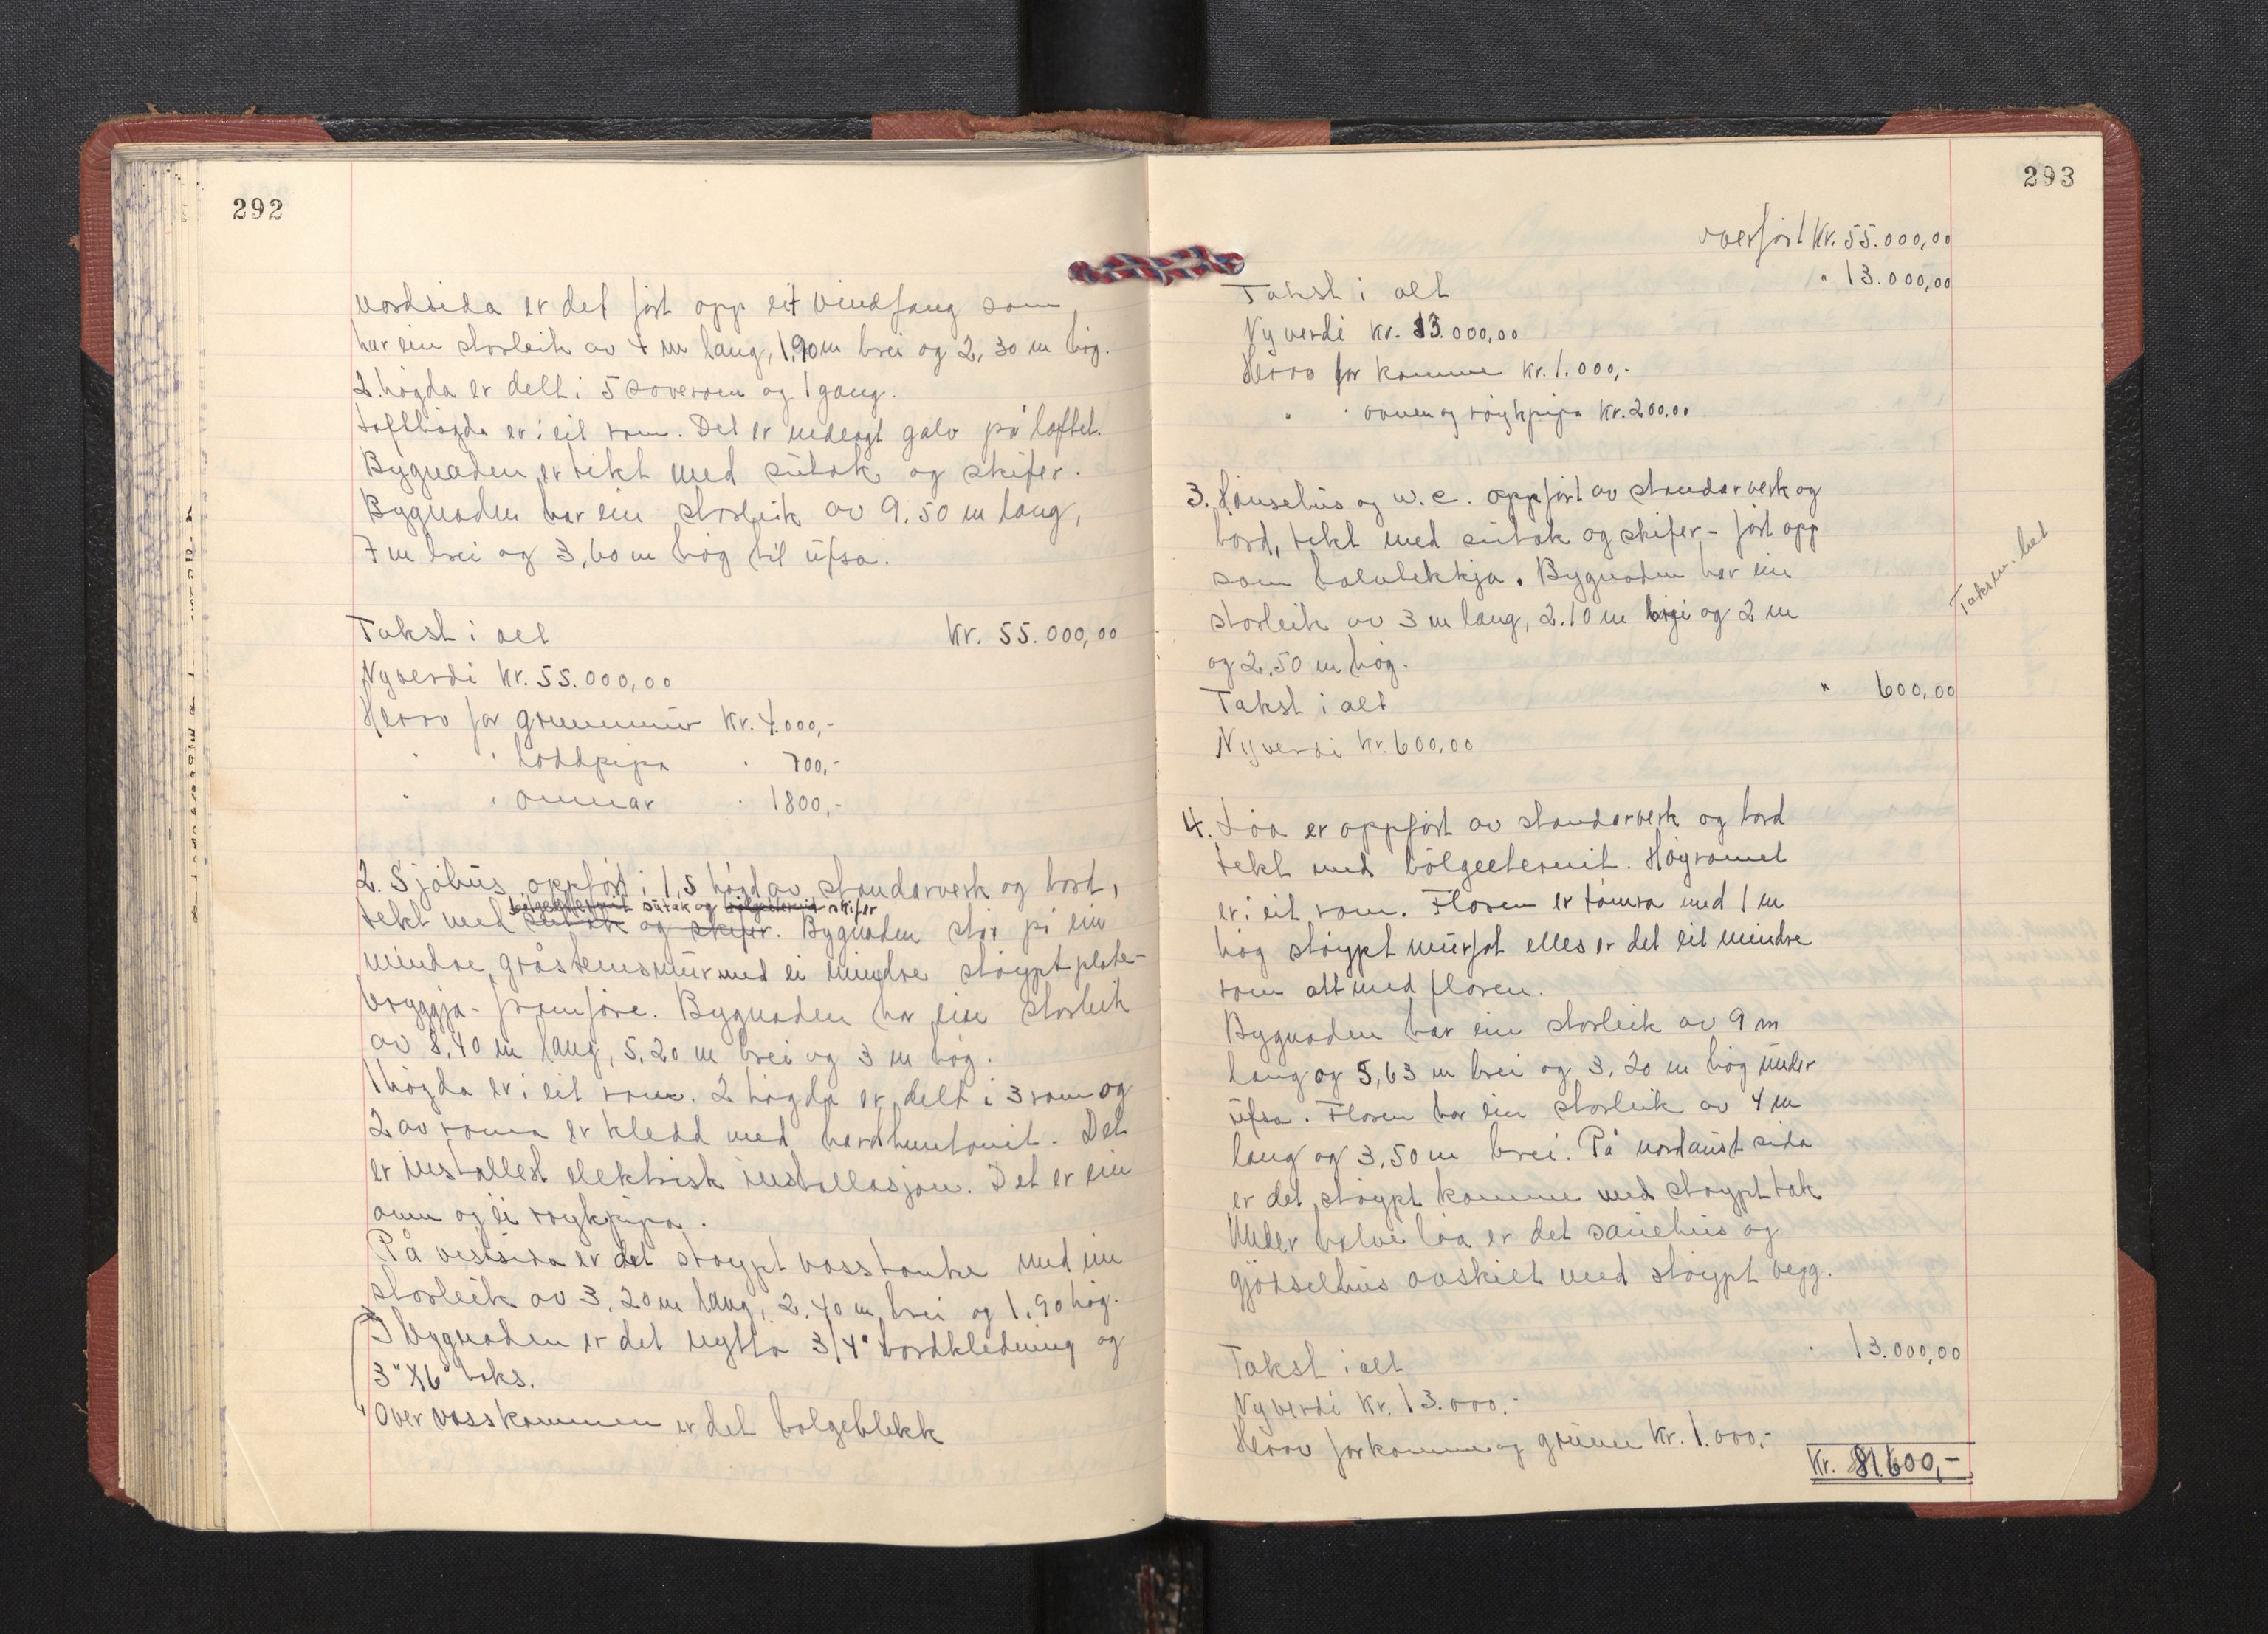 292
nordsida er det ført opp eit vindfang som
har ein storleik av 4 m lang, 1,90 m brei og 2,30 m høg.
2. høgda er delt i 5 soverom og 1 gang.
Lofthøgda er i eit rom. Det er nedlagt golv på loftet.
Bygnaden er tekt med sutak og skifer.
Bygnaden har ein storleik av 9.50 m lang,
7 m brei og 3,60 m høg til ufsa.
Takst i alt Kr. 55.000,00
Nyverdi Kr. 55.000,00
Herav for grunnmur Kr. 4.000,-
" " Loddpipa " 700,-
" " omnar " 1800,-
2. Sjøhus oppført i 1,5 høgd av standarverk og bord,
bølgeeternit sutak og bølgeeternit skifer
tekt med sutak og skifer. Bygnaden står på ein
mindre gråsteinsmur med ei mindre støypt plate-
bryggja - framføre. Bygnaden har ein storleik
av 8,40 m lang, 5,20 m brei og 3 m høg.
1 høgda er i eit rom. 2 høgda er delt i 3 rom og
2 av roma er kledd med hardhuntonit. Det
er installert elektrisk installasjon. Det er ein
omn og ei røykpipa.
På vestsida er det støypt vasstanke med ein
storleik av 3,20 m lang, 2,40 m brei og 1,90 høg.
I bygnaden er det nytta 3/4" bordkledning og
3"X6" taks.
Over vasskommen er det bølgeblekk
293
overført Kr. 55.000,00
Takst i alt " 13.000,00
Nyverdi Kr. 13.000,00
Herav for komme Kr. 1.000,-
" " omnen og røykpipa Kr. 200,00
3. Hønsehus og w.c. oppført av standarverk og
bord, tekt med sutak og skifer - ført opp
som halvtekkja. Bygnaden har ein
storleik av 3 m lang, 2.10 m brei og 2 m
og 2,50 m høg.
Takst i alt " 600,00
Nyverdi Kr. 600,00
4. Løa er oppført av standarverk og bord
tekt med bølgeeternit. Høyromet
er i eit rom. Floren er tømra med 1 m
høg støypt murfot elles er det eit mindre
rom att med floren.
Bygnaden har ein storleik av 9 m
lang og 5,63 m brei og 3,20 m høg under
ufsa. Floren har ein storleik av 4 m
lang og 3,50 m brei. På nordaust sida
er det støypt komme med støypt tak
Under halve løa er det sauehus og
gjødselhus avskilt med støypt vegg.
Takst i alt " 13.000,00
Nyverdi Kr. 13.000,-
Herav for komme og grunn Kr. 1.000,-
Kr. 81.600,-